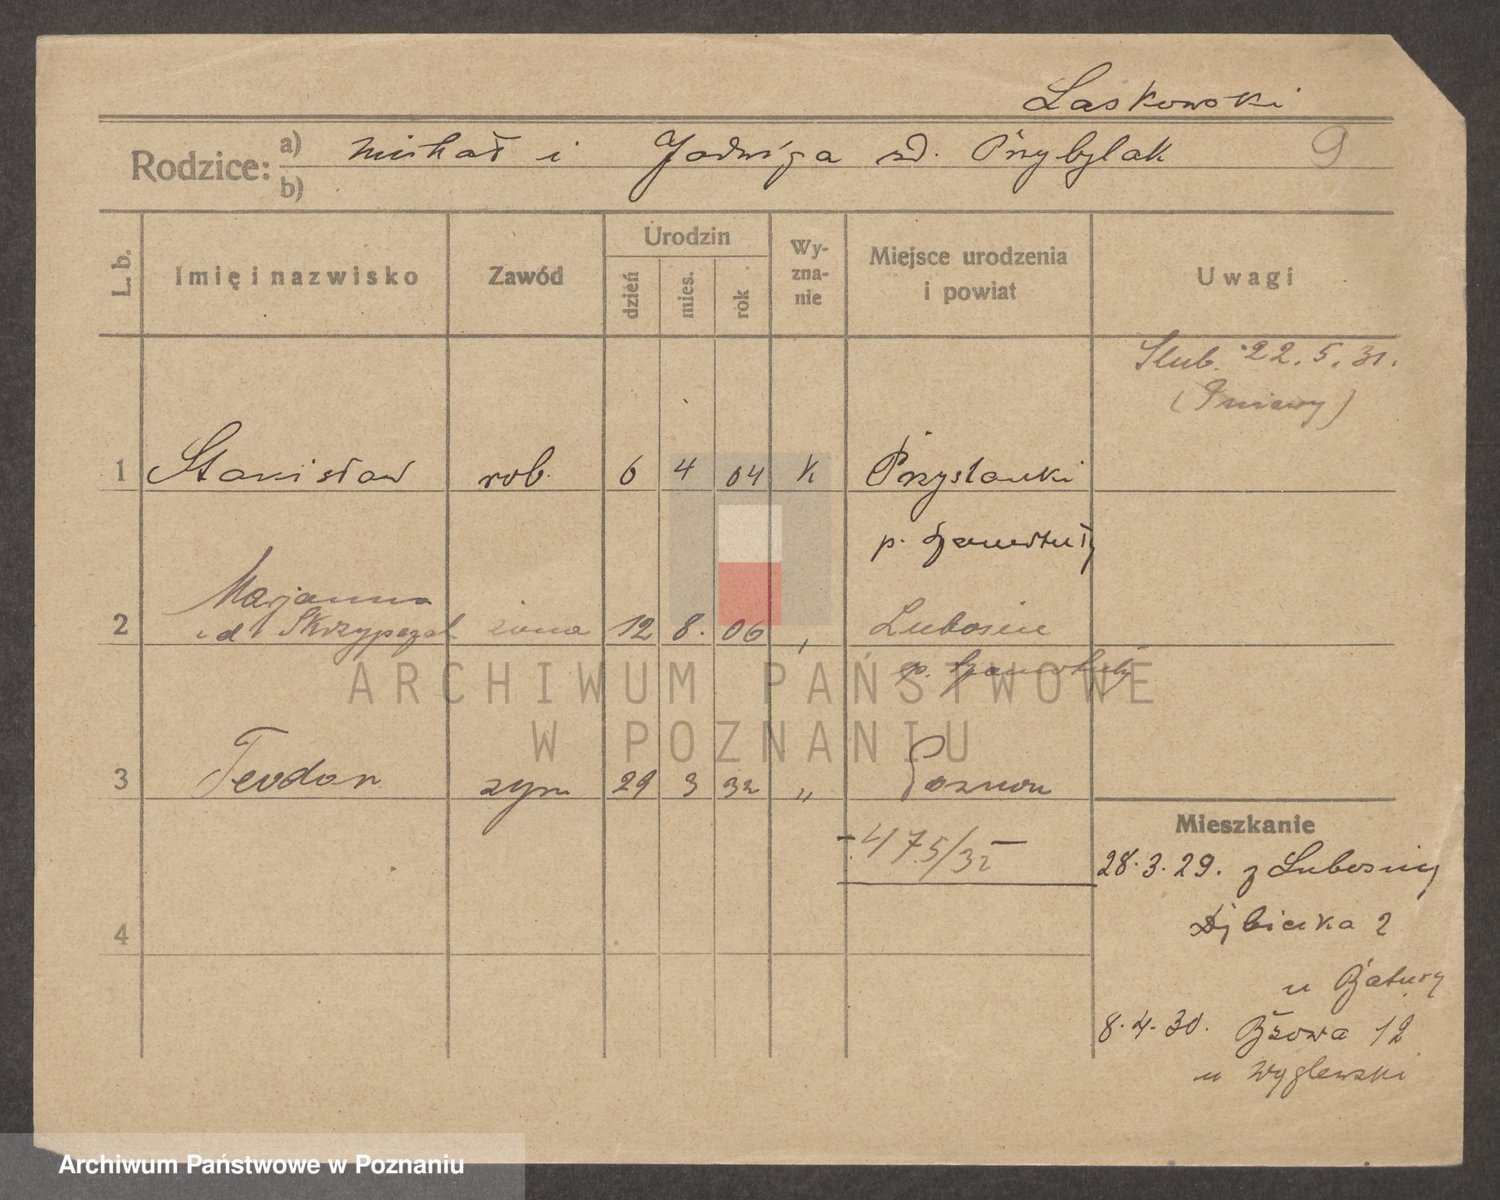 Laskowski
Rodzice: a) Michał i Jadwiga zd. Przybylak 9
b)
L. b. Imię i nazwisko Zawód Urodzin dzień mies. rok Wyznanie Miejsce urodzenia i powiat Uwagi
Ślub. 22. 5. 31.
(Pniewy)
1 Stanisław rob. 6 4 04 k Przystanki
p. Szamotuły
Marjanna
2 zd Skrzypczak żona 12 8. 06 " Lubosin
p. Szamotuły
3 Teodor syn 29 3 32 " Poznań
475/32
Mieszkanie
28.3.29. z Lubosiny
4
Dębiecka 2
u Batury
8.4.30. Bzowa 12
u Wyglewski
ARCHIWUM PAŃSTWOWE
W POZNANIU
Archiwum Państwowe w Poznaniu